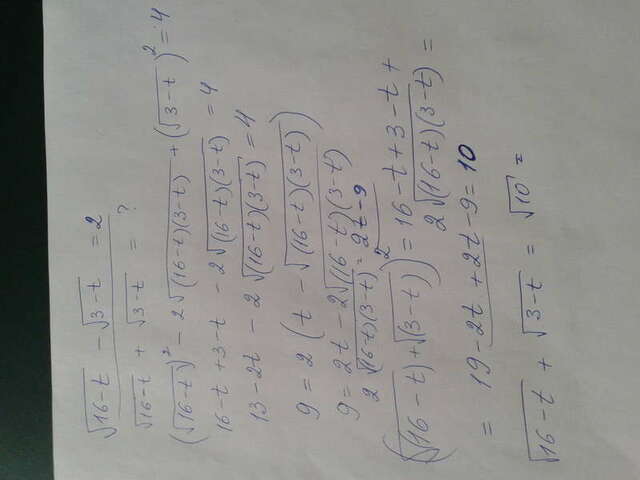 √16-t - √3-t = 2
√16-t + √3-t = ?
(√16-t)² - 2√(16-t)(3-t) + (√3-t)² = 4
16-t+3-t - 2√(16-t)(3-t) = 4
13-2t - 2√(16-t)(3-t) = 4
9 = 2(t - √(16-t)(3-t))
9 = 2t - 2√(16-t)(3-t)
2√(16-t)(3-t) = 2t-9
(√(16-t) + √(3-t))² = 16-t+3-t+
2√(16-t)(3-t) =
= 19-2t+2t-9 = 10
√16-t + √3-t = √10 =